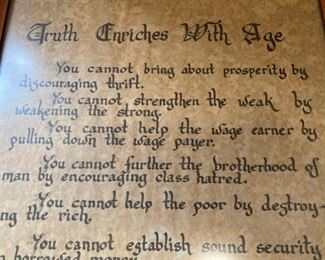 Truth Enriches With Age
You cannot bring about prosperity by
discouraging thrift.
You cannot strengthen the weak by
weakening the strong.
You cannot help the wage earner by
pulling down the wage payer.
You cannot further the brotherhood of
man by encouraging class hatred.
You cannot help the poor by destroy-
ng the rich.
You cannot establish sound security
n borrowed money.